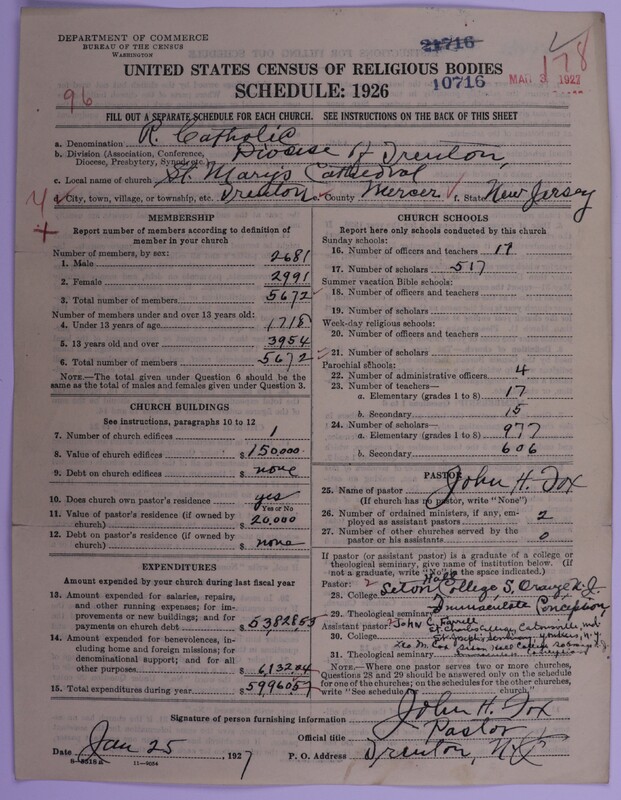 DEPARTMENT OF COMMERCE
BUREAU OF THE CENSUS
WASHINGTON
21716
10716
178
MAR 3 1927
UNITED STATES CENSUS OF RELIGIOUS BODIES
SCHEDULE: 1926
96
FILL OUT A SEPARATE SCHEDULE FOR EACH CHURCH. SEE INSTRUCTIONS ON THE BACK OF THIS SHEET
a. Denomination R. Catholic
b. Division (Association, Conference, Diocese, Presbytery, Synod, etc.) Diocese of Trenton,
c. Local name of church St. Marys Cathedral
d. City, town, village, or township, etc. Trenton e. County Mercer f. State New Jersey
MEMBERSHIP
Report number of members according to definition of member in your church
Number of members, by sex:
1. Male 2681
2. Female 2991
3. Total number of members 5672
Number of members under and over 13 years old:
4. Under 13 years of age 1718
5. 13 years old and over 3954
6. Total number of members 5672
NOTE.—The total given under Question 6 should be the same as the total of males and females given under Question 3.
CHURCH BUILDINGS
See instructions, paragraphs 10 to 12
7. Number of church edifices 1
8. Value of church edifices $ 150,000
9. Debt on church edifices $ none
10. Does church own pastor's residence yes
Yes or No
11. Value of pastor's residence (if owned by church) $ 20,000
12. Debt on pastor's residence (if owned by church) $ none
EXPENDITURES
Amount expended by your church during last fiscal year
13. Amount expended for salaries, repairs, and other running expenses; for improvements or new buildings; and for payments on church debt $ 53828.53
14. Amount expended for benevolences, including home and foreign missions; for denominational support; and for all other purposes $ 6,132.04
15. Total expenditures during year $ 59960.57
CHURCH SCHOOLS
Report here only schools conducted by this church
Sunday schools:
16. Number of officers and teachers 17
17. Number of scholars 517
Summer vacation Bible schools:
18. Number of officers and teachers
19. Number of scholars
Week-day religious schools:
20. Number of officers and teachers
21. Number of scholars
Parochial schools:
22. Number of administrative officers 4
23. Number of teachers—
a. Elementary (grades 1 to 8) 17
b. Secondary 15
24. Number of scholars—
a. Elementary (grades 1 to 8) 977
b. Secondary 606
PASTOR
25. Name of pastor John H. Fox
(If church has no pastor, write "None")
26. Number of ordained ministers, if any, employed as assistant pastors 2
27. Number of other churches served by the pastor or his assistants 0
If pastor (or assistant pastor) is a graduate of a college or theological seminary, give name of institution below. (If not a graduate, write "No" in the space indicated.)
Pastor:
28. College Seton Hall College S. Orange N.J.
29. Theological seminary Immaculate Conception
Assistant pastor: John C. Farrell
St. Charles College, Catonsville, Md
30. College St. Joseph's Seminary Yonkers, N.Y.
31. Theological seminary
NOTE.—Where one pastor serves two or more churches, Questions 28 and 29 should be answered only on the schedule for one of the churches; on the schedules for the other churches, write "See schedule church."
Signature of person furnishing information John H. Fox
Official title Pastor
Date Jan 25, 1927
P. O. Address Trenton, N.J.
8—5318a
11—9034